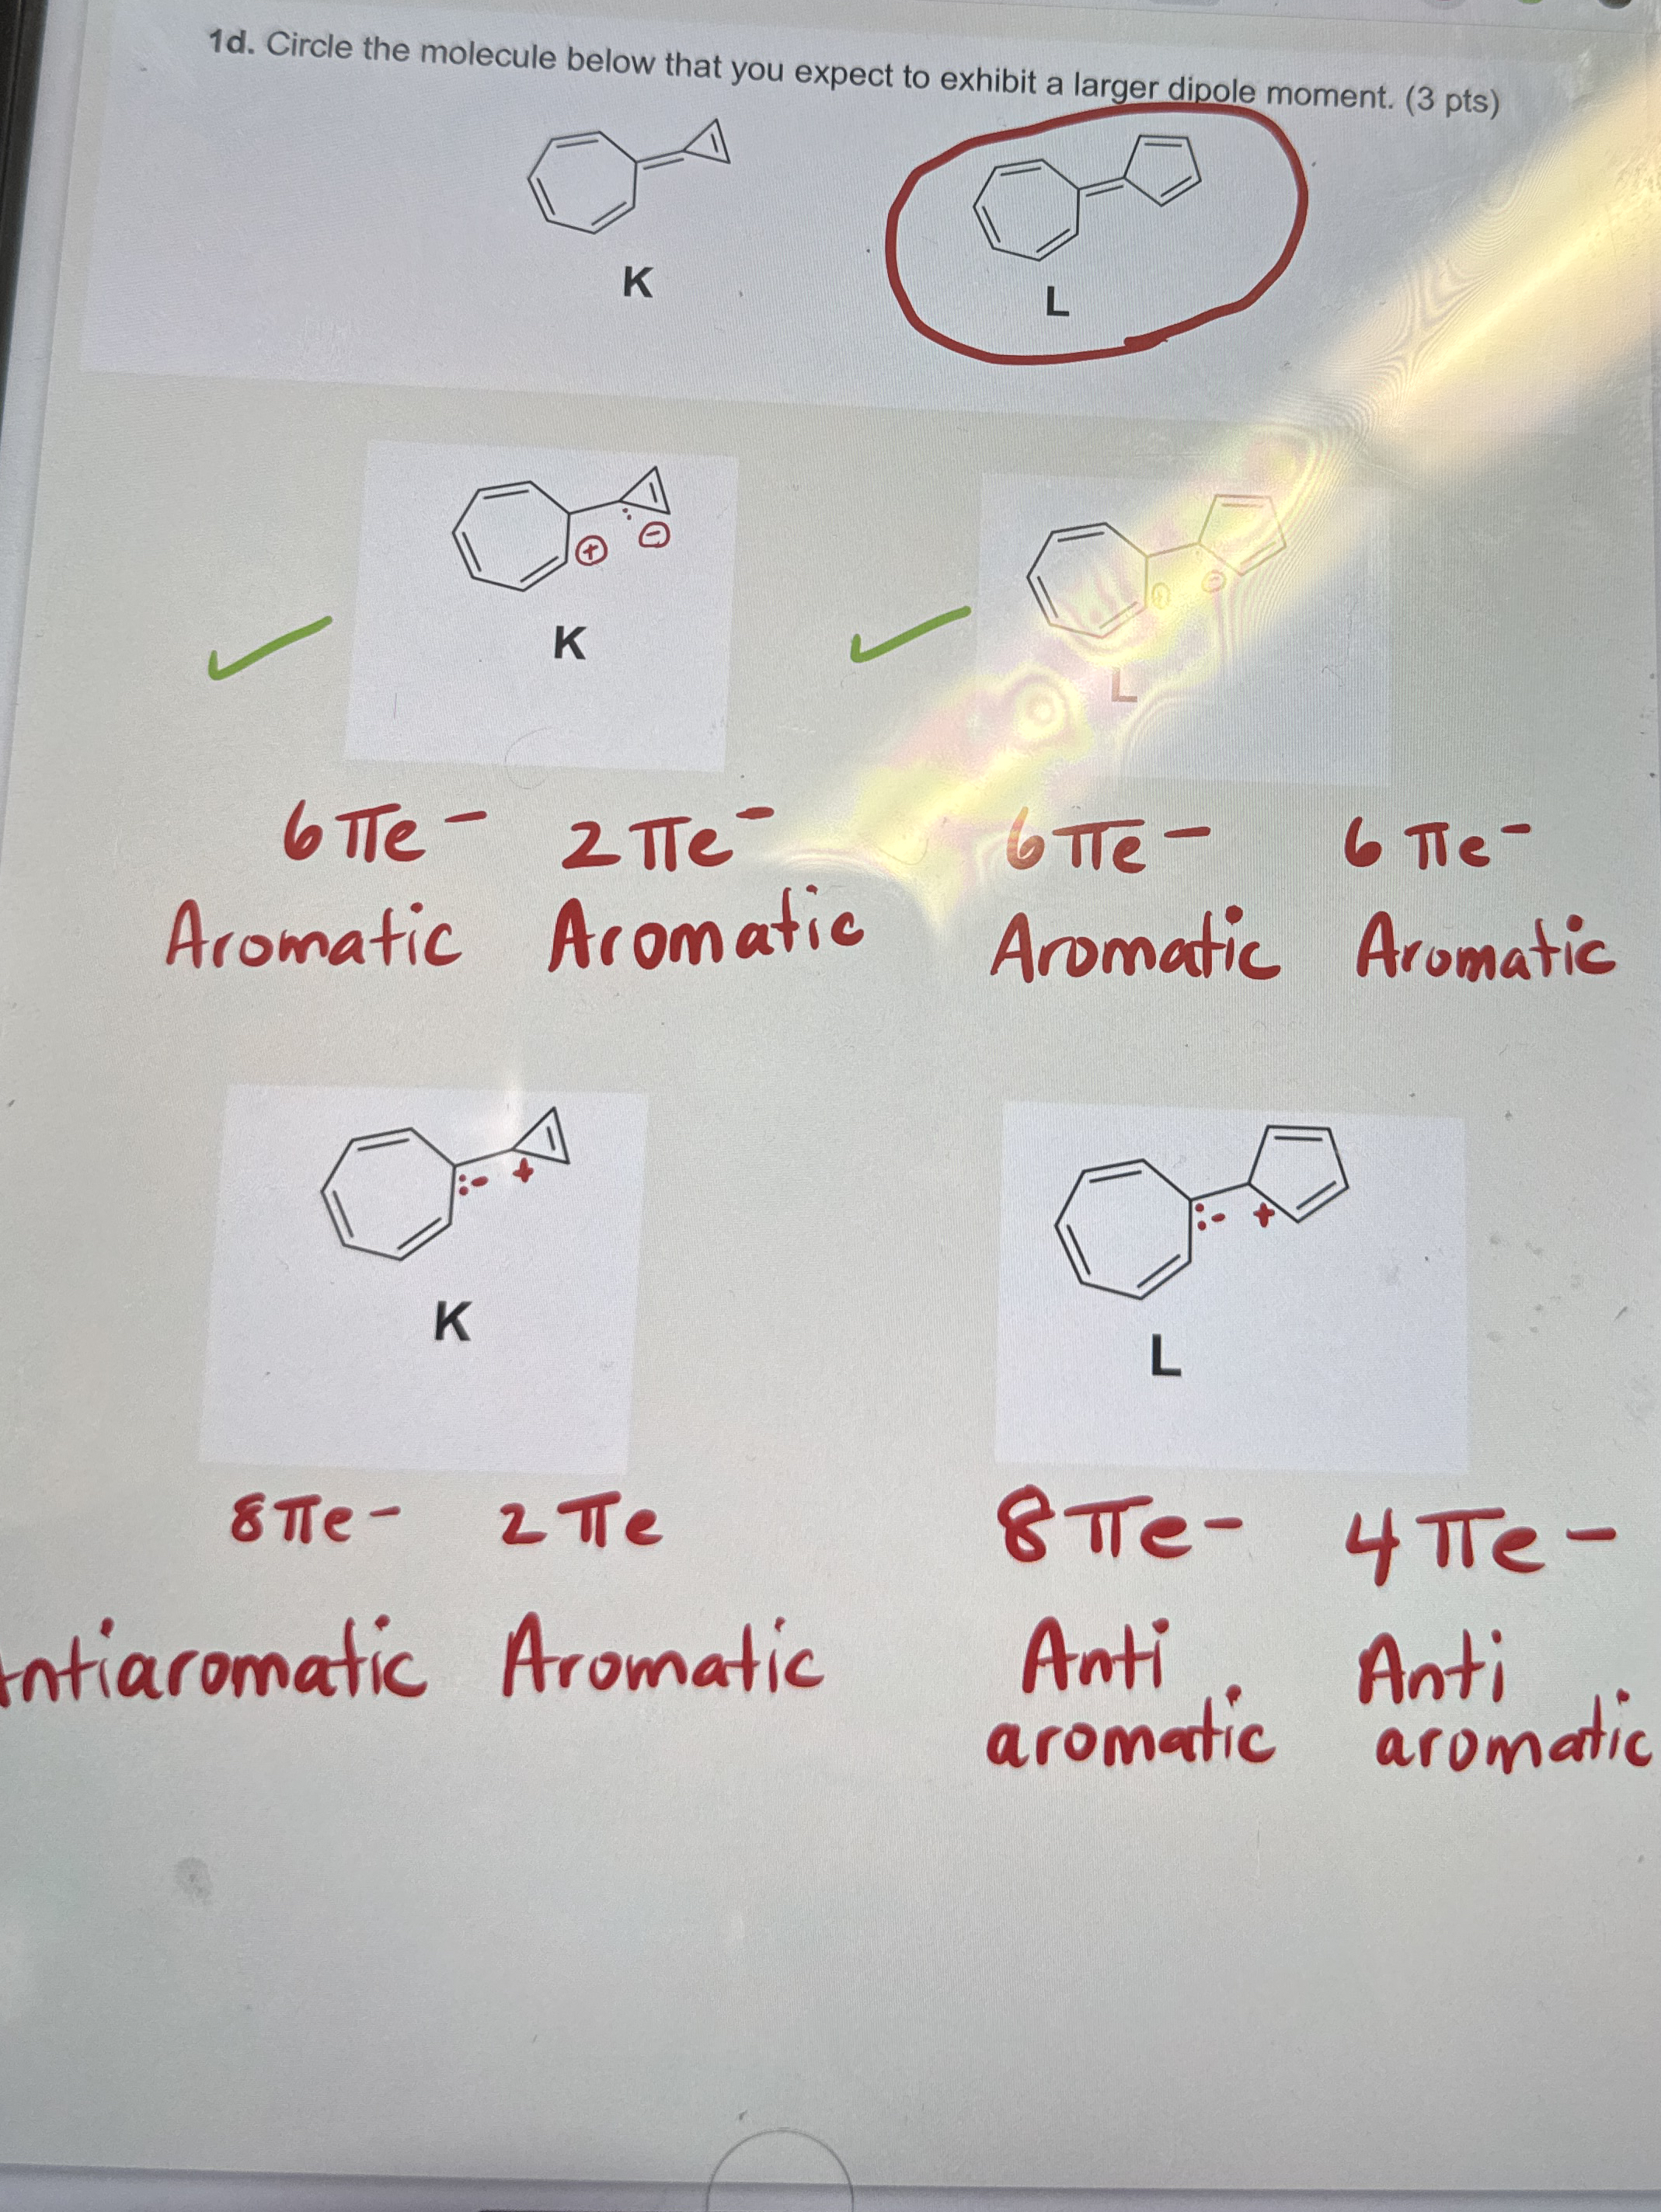 1d. Circle the molecule below that you expect to exhibit a larger dipole moment. (3 pts)
K L
+ -
+ -
K L
6πe- 2πe- 6πe- 6πe-
Aromatic Aromatic Aromatic Aromatic
:- +
:- +
K
L
8πe- 2πe 8πe- 4πe-
ntiaromatic Aromatic Anti Anti
aromatic aromatic